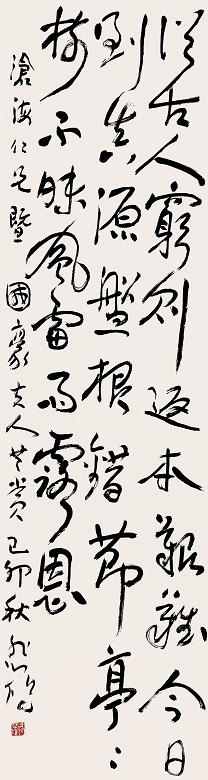 從古人窮則返本艱難今日
到真源盤根錯節亭〻
樹不昧風雷雨露恩
滄海仁兄暨國豪夫人共賞己卯秋